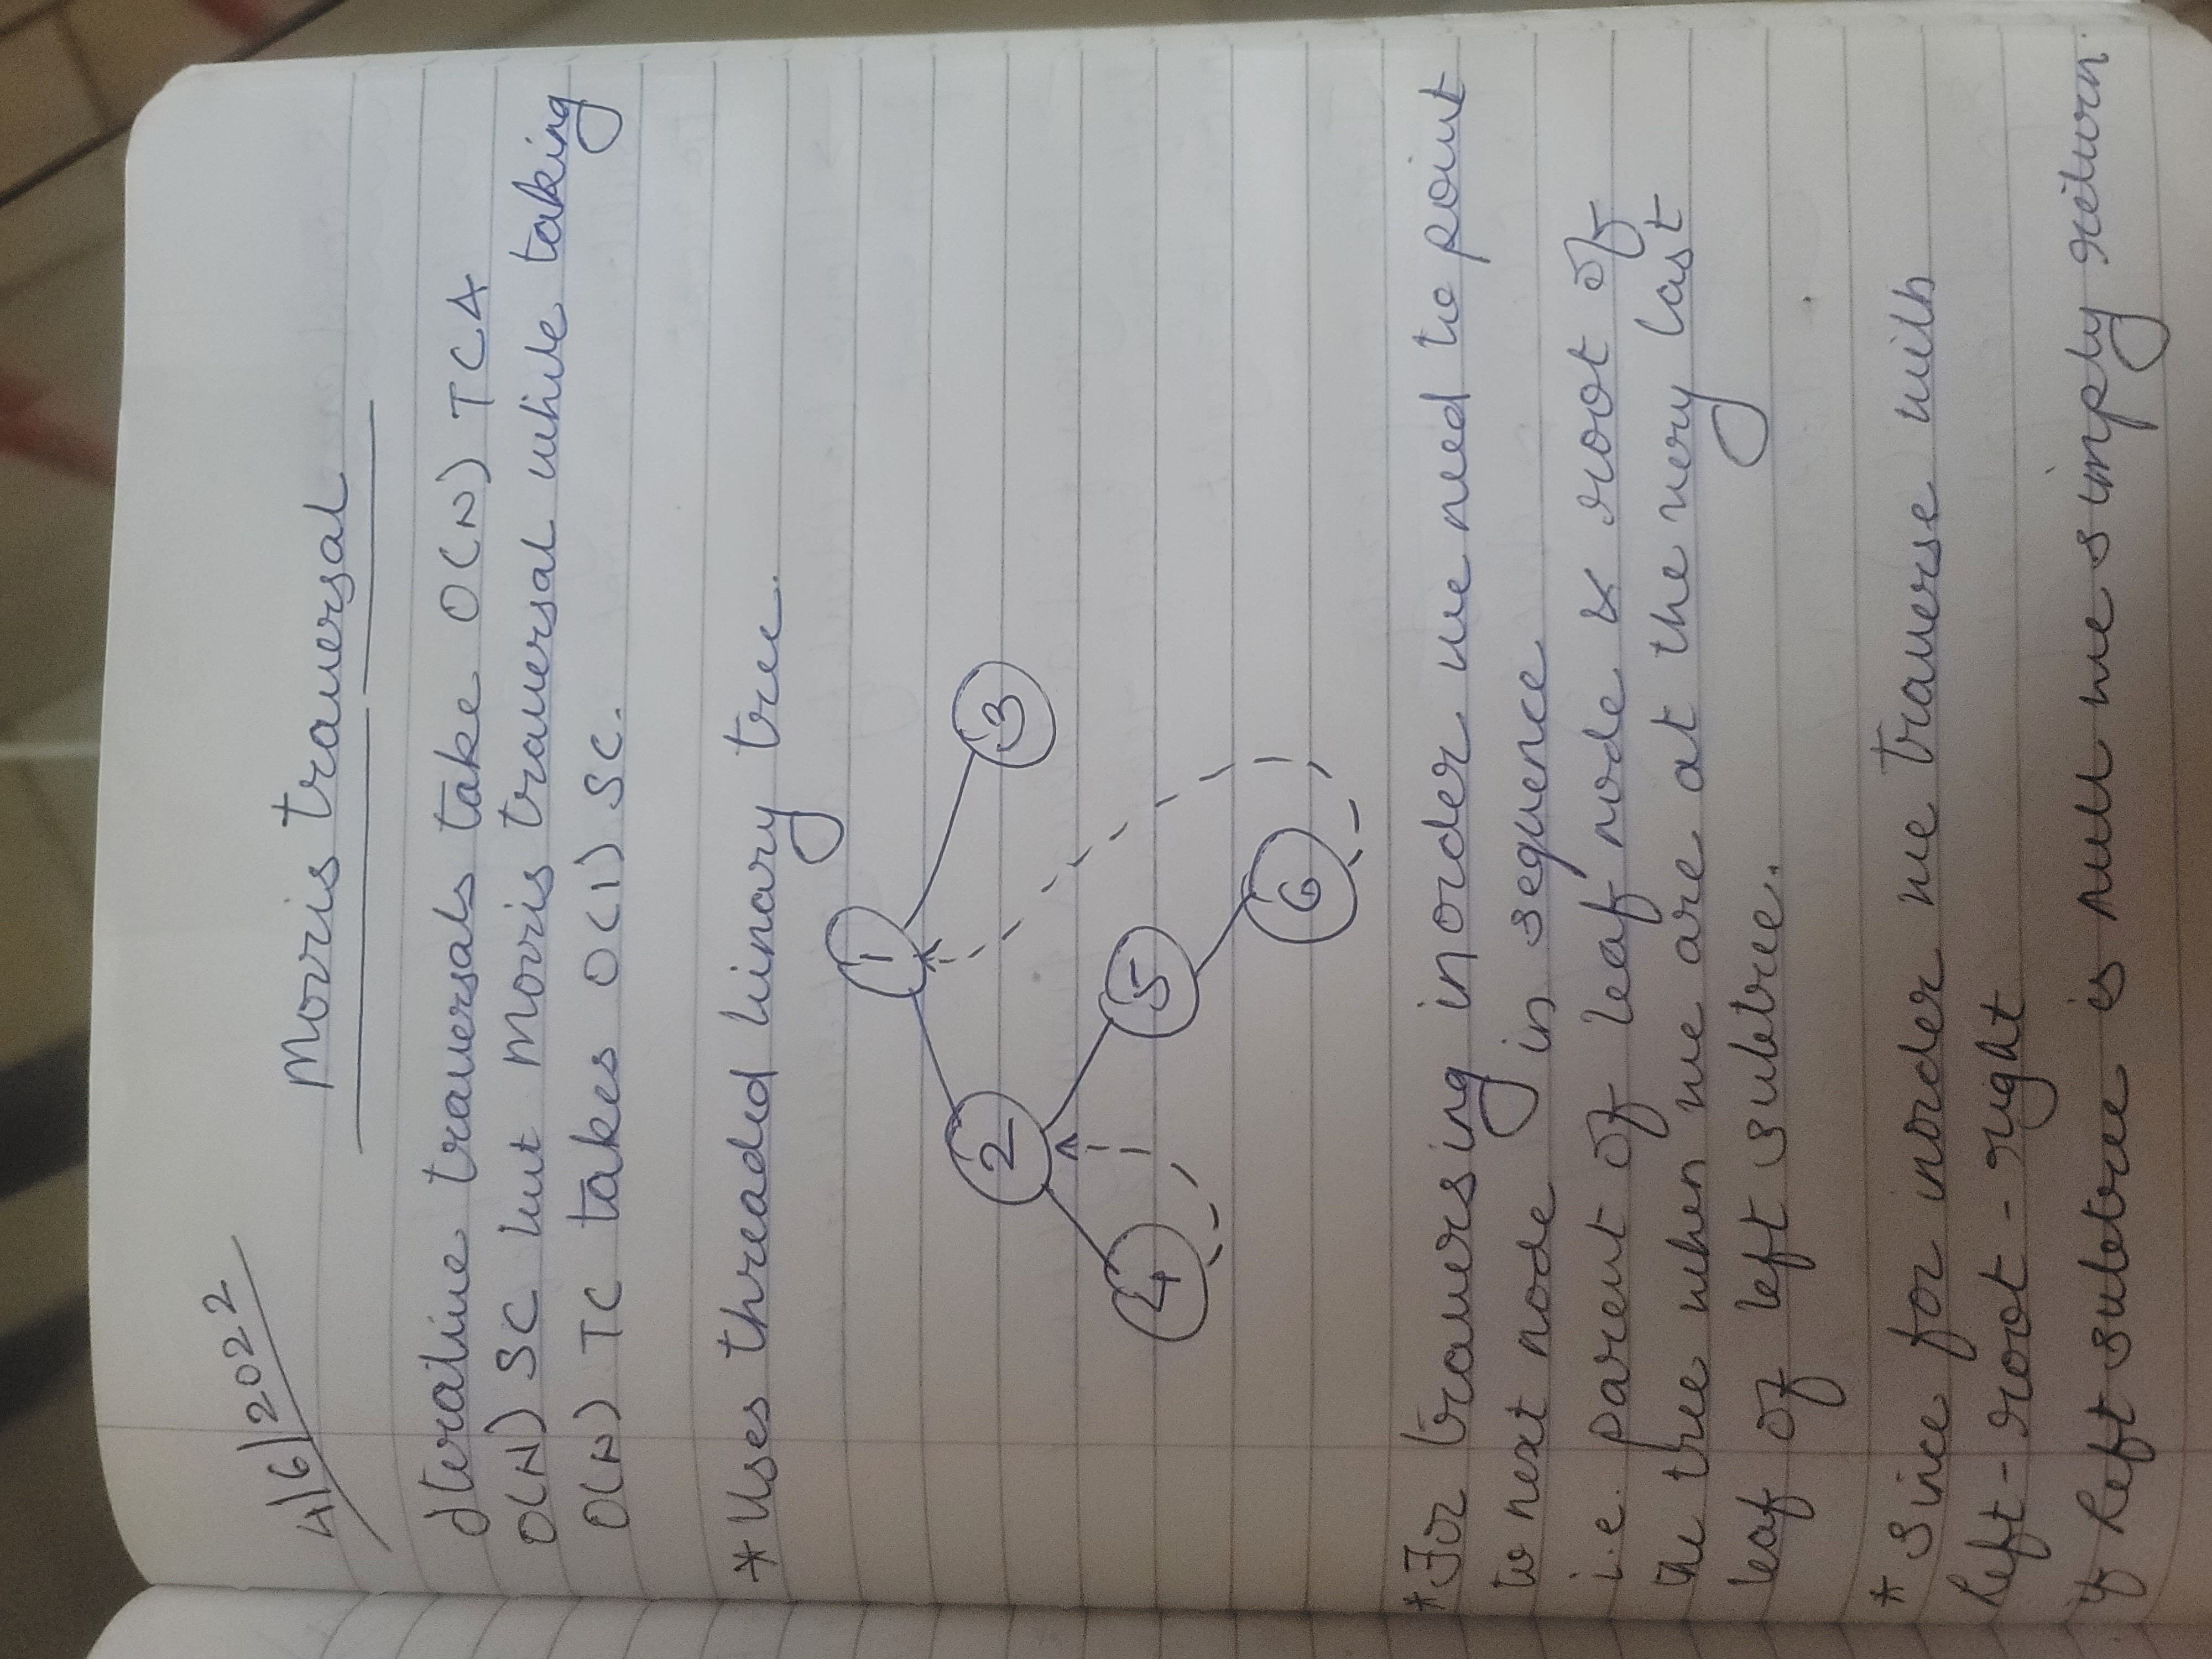 4/6/2022
Morris traversal
Iterative traversals take O(N) TC &
O(N) SC but Morris traversal while taking
O(N) TC takes O(1) SC.
* Uses threaded binary tree.
1
2
3
4
5
6
* For traversing inorder we need to point
to next node in sequence
i.e. parent of leaf node & root of
the tree when we are at the very last
leaf of left subtree.
* Since for inorder we traverse with
left - root - right
if left subtree is null we simply return